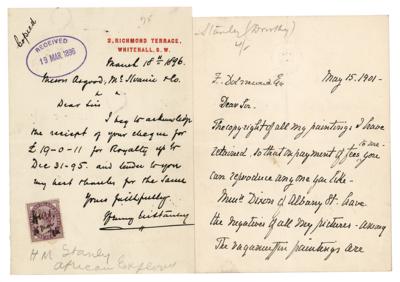 Copied
RECEIVED
19 MAR. 1896
2, RICHMOND TERRACE,
WHITEHALL, S.W.
March 18th 1896.
Messrs Osgood, McIlvaine & Co.
Dear Sirs
I beg to acknowledge
the receipt of your cheque for
£19-0-11 for Royalty up to
Dec 31-95. and tender to you
my best thanks for the same
Yours faithfully
Henry M Stanley
H M Stanley
African Explorer
Stanley (Dorothy)
May 15. 1901-
Dear Sir.
The copyright of all my paintings I have
retained, so that on payment of fees, you
to me
can reproduce any one you like.
Messrs Dixon of Albany St. have
the negatives of all my pictures - among
The Ragamuffin paintings are